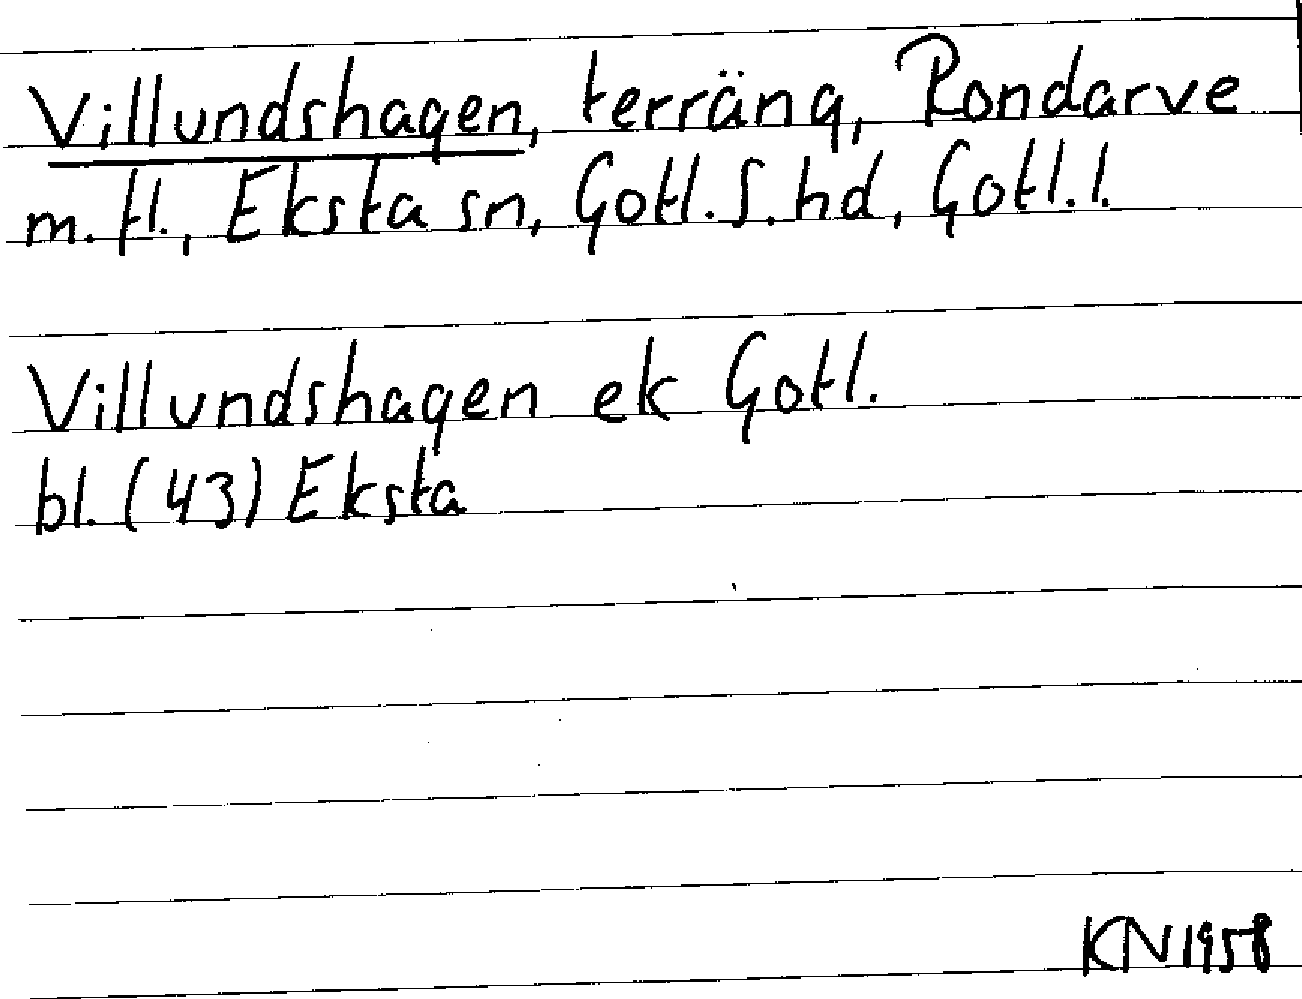 Villundshagen, terräng, Rondarve
m. fl., Eksta sn, Gotl. S. hd, Gotl. l.
Villundshagen ek Gotl.
bl. (43) Eksta
KN 1958